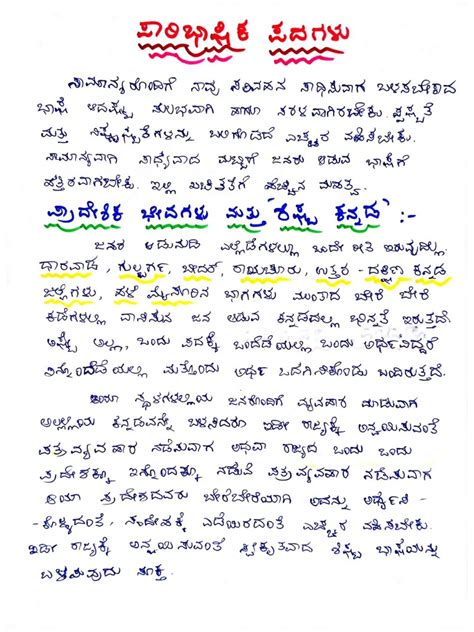 ಪಾರಿಭಾಷಿಕ ಪದಗಳು
ಸಾಮಾನ್ಯರೊಂದಿಗೆ ನಾವು ಸಂವಹನ ಸಾಧಿಸುವಾಗ ಬಳಸಬೇಕಾದ
ಭಾಷೆ ಆದಷ್ಟು ಸುಲಭವಾಗಿ ಹಾಗೂ ಸರಳವಾಗಿರಬೇಕು. ಸ್ಪಷ್ಟತೆ
ಮತ್ತು ನಿಷ್ಕೃಷ್ಟತೆಗಳನ್ನು ಬಲಿಗೊಡದೆ ಎಚ್ಚರ ವಹಿಸಬೇಕು.
ಸಾಮಾನ್ಯವಾಗಿ ಸಾಧ್ಯವಾದ ಮಟ್ಟಿಗೆ ಜನರು ಆಡುವ ಭಾಷೆಗೆ
ಹತ್ತಿರವಾಗಬೇಕು. ಇಲ್ಲಿ ಖಚಿತತೆಗೆ ಹೆಚ್ಚಿನ ಮಹತ್ವ.
ಪ್ರಾದೇಶಿಕ ಭೇದಗಳು ಮತ್ತು "ಶಿಷ್ಟ ಕನ್ನಡ" :-
ಜನರ ಆಡುನುಡಿ ಎಲ್ಲೆಡೆಗಳಲ್ಲೂ ಒಂದೇ ರೀತಿ ಇರುವುದಿಲ್ಲ
ಧಾರವಾಡ, ಗುಲ್ಬರ್ಗ, ಬೀದರ್, ರಾಯಚೂರು, ಉತ್ತರ - ದಕ್ಷಿಣ ಕನ್ನಡ
ಜಿಲ್ಲೆಗಳು, ಹಳೆ ಮೈಸೂರಿನ ಭಾಗಗಳು ಮುಂತಾದ ಬೇರೆ ಬೇರೆ
ಕಡೆಗಳಲ್ಲಿ ವಾಸಿಸುವ ಜನ ಆಡುವ ಕನ್ನಡದಲ್ಲಿ ಭಿನ್ನತೆ ಇರುತ್ತದೆ.
ಅಷ್ಟೆ ಅಲ್ಲ, ಒಂದು ಪದಕ್ಕೆ ಒಂದೆಡೆಯಲ್ಲಿ ಒಂದು ಅರ್ಥವಿದ್ದರೆ
ಇನ್ನೊಂದೆಡೆಯಲ್ಲಿ ಮತ್ತೊಂದು ಅರ್ಥ ಒದಗಿಸಿಕೊಂಡು ಬಂದಿರುತ್ತದೆ.
ಆಯಾ ಸ್ಥಳಗಳಲ್ಲಿಯ ಜನರೊಂದಿಗೆ ವ್ಯವಹಾರ ಮಾಡುವಾಗ
ಅಲ್ಲಲ್ಲಿಯ ಕನ್ನಡವನ್ನೇ ಬಳಸಿದರೂ ಇಡೀ ರಾಜ್ಯಕ್ಕೆ ಅನ್ವಯಿಸುವಂತೆ
ಪತ್ರವ್ಯವಹಾರ ನಡೆಸುವಾಗ ಅಥವಾ ರಾಜ್ಯದ ಒಂದು ಒಂದು
ಪ್ರದೇಶಕ್ಕೂ ಇನ್ನೊಂದಕ್ಕೂ ನಡುವೆ ಪತ್ರವ್ಯವಹಾರ ನಡೆಸುವಾಗ
ಆಯಾ ಪ್ರದೇಶದವರು ಬೇರೆಬೇರೆಯಾಗಿ ಅದನ್ನು ಅರ್ಥೈಸಿ-
-ಕೊಳ್ಳದಂತೆ, ಸಂದೇಶಕ್ಕೆ ಎಡೆಯಿರದಂತೆ ಎಚ್ಚರ ವಹಿಸಬೇಕು.
ಇಡೀ ರಾಜ್ಯಕ್ಕೆ ಅನ್ವಯಿಸುವಂತೆ ಸ್ವೀಕೃತವಾದ ಶಿಷ್ಟ ಭಾಷೆಯನ್ನು
ಬಳಸುವುದು ಸೂಕ್ತ.